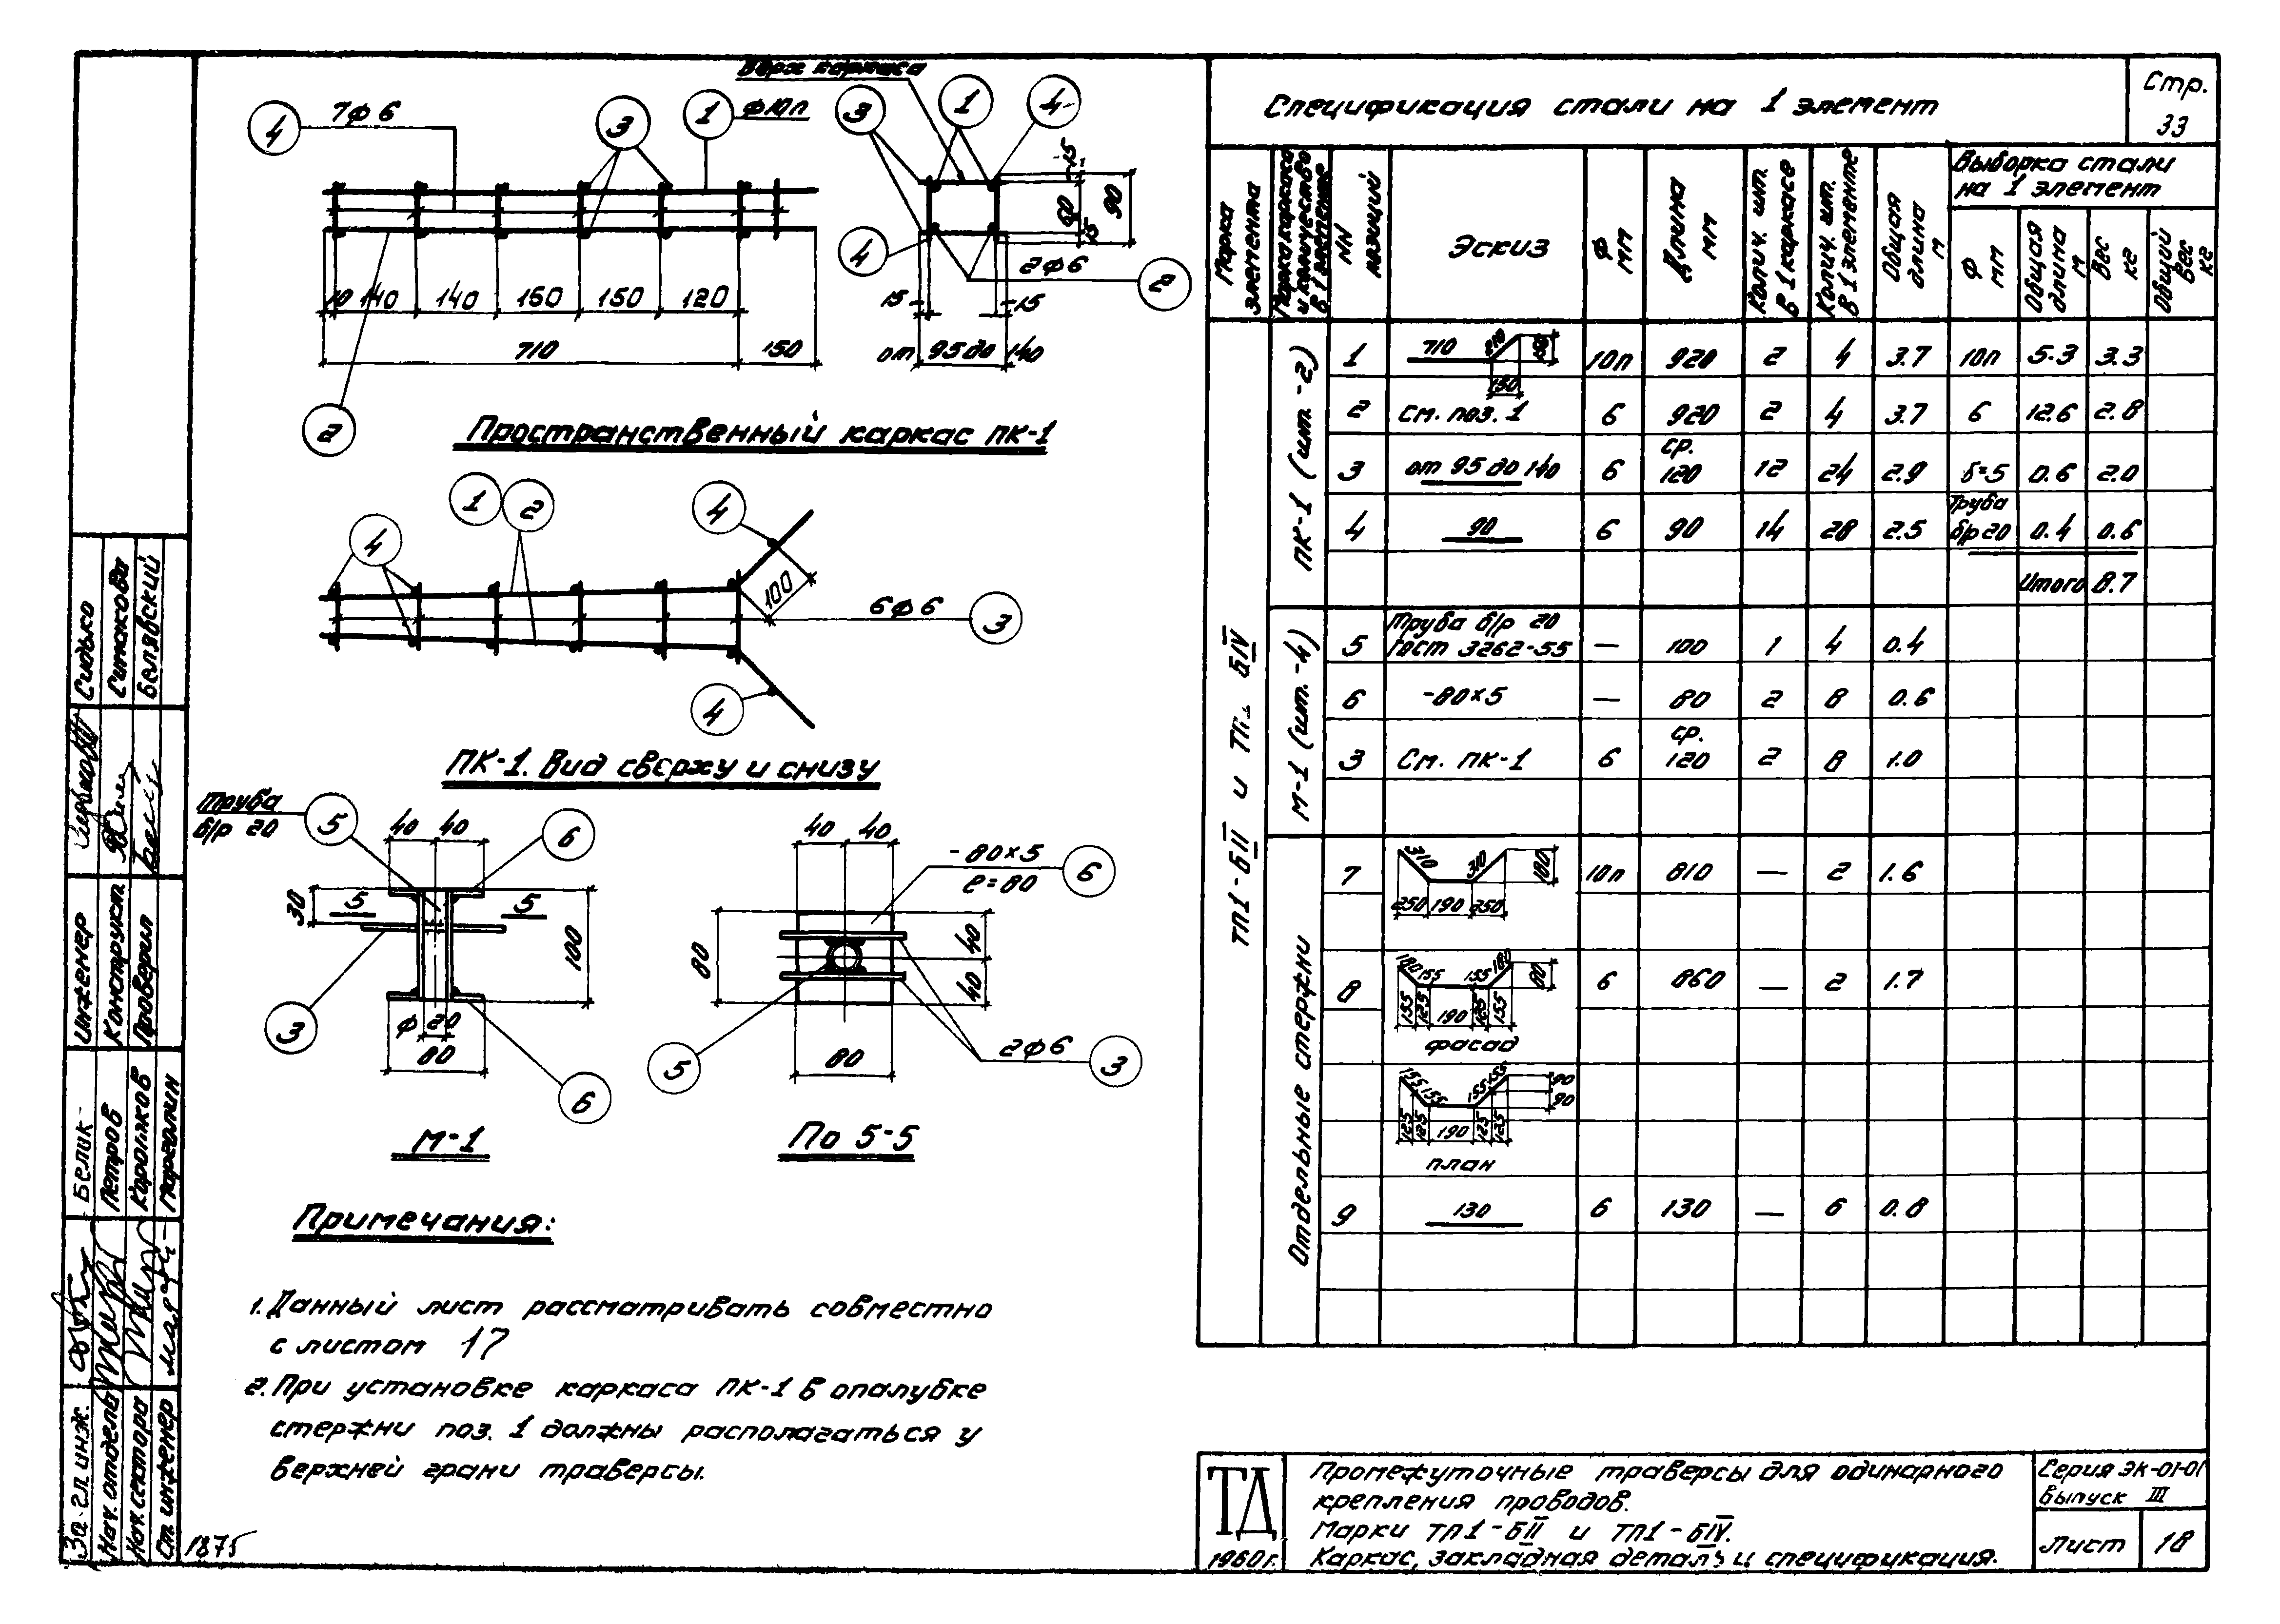 Верх каркаса
4
7ф6
3
1
ф10п
3
1
4
15
60
90
15
4
2ф6
2
10
140
140
150
150
120
710
150
15
15
от 95 до 140
2
Пространственный каркас ПК-1
1
2
4
4
100
6ф6
3
4
ПК-1. Вид сверху и снизу
Труба
б/р 20
5
40
40
6
30
5
5
100
3
ф 20
80
6
М-1
40
40
-80×5
ℓ=80
6
80
40
40
5
80
2ф6
3
По 5-5
Примечания:
1. Данный лист рассматривать совместно
с листом 17
2. При установке каркаса ПК-1 в опалубке
стержни поз. 1 должны располагаться у
верхней грани траверсы.
1875
Спецификация стали на 1 элемент
Стр.
33
Марка элемента
Марка каркаса и количество в 1 элементе
NN позиций
Эскиз
Ф мм
Длина мм
Колич. шт. в 1 каркасе
Колич. шт. в 1 элементе
Общая длина м
Выборка стали
на 1 элемент
Ф мм
Общая длина м
Вес кг
Общий вес кг
ТП1-БII и ТП1-БIV
ПК-1 (шт.-2)
1 710 210 150 150 10п 920 2 4 3.7 10п 5.3 3.3
2 См. поз. 1 6 920 2 4 3.7 6 12.6 2.8
3 от 95 до 140 6 ср. 120 12 24 2.9 δ=5 0.6 2.0
4 90 6 90 14 28 2.5 Труба б/р 20 0.4 0.6
Итого 8.7
М-1 (шт.-4)
5 Труба б/р 20 ГОСТ 3262-55 — 100 1 4 0.4
6 -80×5 — 80 2 8 0.6
3 См. ПК-1 6 ср. 120 2 8 1.0
Отдельные стержни
7 310 310 180 250 190 250 10п 810 — 2 1.6
8 180 155 155 180 80 155 125 190 125 155 6 860 — 2 1.7
фасад
155 155 155 155 90 90 125 125 190 125 125
план
9 130 6 130 — 6 0.8
ТД
1960г.
Промежуточные траверсы для одинарного
крепления проводов.
Марки ТП1-БII и ТП1-БIV.
Каркас, закладная деталь и спецификация.
Серия ЭК-01-01
Выпуск III
Лист 18
Сидько
Ситакова
Белявский
Инженер
Конструкт.
Проверил
Белик
Петров
Коротков
гл. инж.
Нач. отдела
Нач. сектора
Ст. инженер